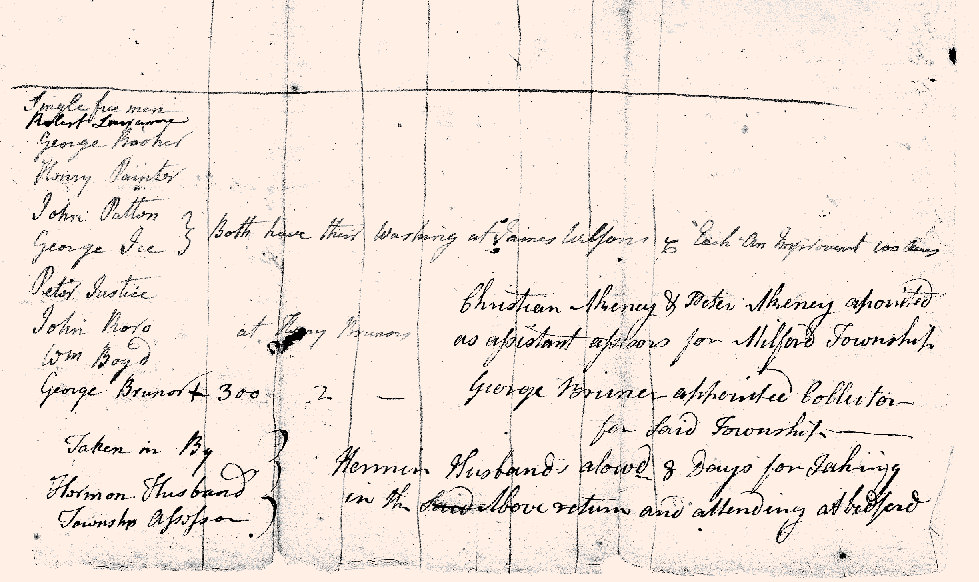 Single free men
Robert
George Booher
Henry Painter
John Patton
George Ice } Both have their Washing at James Wilsons & Each An Improvement
Peter Justice
John Roro at Henry Brunors
Wm Boyd
George Brunor + 300 2 —
Christian Ankeney & Peter Ankeney apointed
as assistant assisors for Milford Township
George Briner appointed Collector
for Said Township
Taken in By
Hermon Husband
Township Assessor
Hermen Husbands alowd 8 Days for Taking
in the Above return and attending at bedford